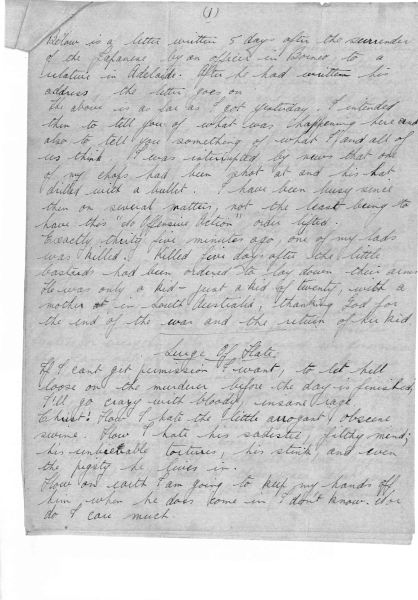 (1)
Below is a letter written 5 days after the surrender
of the Japanese, by an officer in Borneo, to a
relative in Adelaide. After he had written his
address the letter goes on
The above is as far as I got yesterday. I intended
then to tell you of what was happening here and
also to tell you something of what I and all of
us think. I was interrupted by news that one
of my chaps had been shot at and his hat
drilled with a bullet. I have been busy since
then on several matters, not the least being to
have this "No Offensive Action" order lifted.
Exactly thirty five minutes ago, one of my lads
was killed. Killed five days after the little
bastards had been ordered to lay down their arms
He was only a kid - just a kid of twenty, with a
mother in South Australia, thanking God for
the end of the war and the return of her kid
Surge Of Hate.
If I cant get permission I want, to let hell
loose on the murderer before the day is finished,
I'll go crazy with bloody, insane rage.
Christ! How I hate the little arrogant obscene
swine. How I hate his sadistic, filthy mind;
his tortures, his stink, and even
the pigsty he lives in.
How on earth I am going to keep my hands off
him when he does come in I don't know. Nor
do I care much.